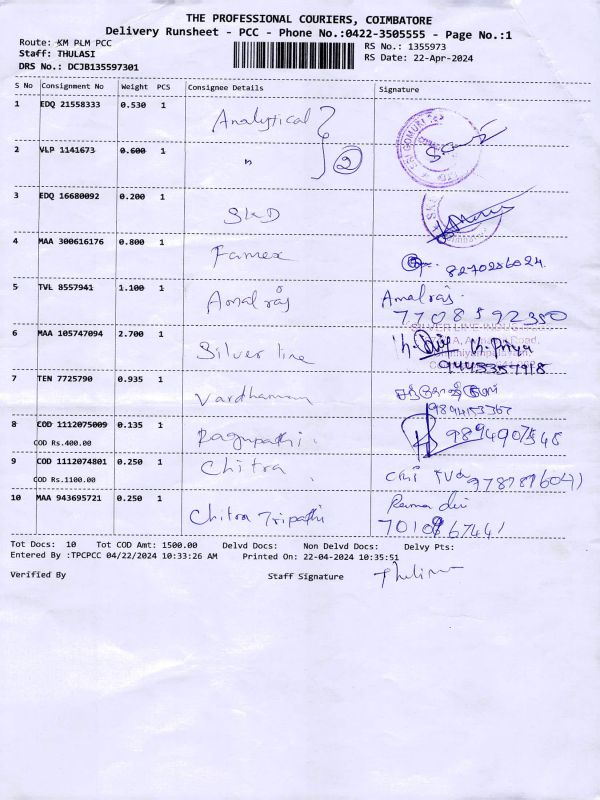 THE PROFESSIONAL COURIERS, COIMBATORE
Delivery Runsheet - PCC - Phone No.:0422-3505555 - Page No.:1
Route: KM PLM PCC
Staff: THULASI
DRS No.: DCJB135597301
RS No.: 1355973
RS Date: 22-Apr-2024
S No Consignment No Weight PCS Consignee Details Signature
1 EDQ 21558333 0.530 1 Analytical
2 VLP 1141673 0.600 1 " 2
3 EDQ 16680092 0.200 1 SKD
4 MAA 300616176 0.800 1 Famex 8270286024
5 TVL 8557941 1.100 1 Amal raj Amalraj.
7708592350
6 MAA 105747094 2.700 1 Silver line
9445357918
7 TEN 7725790 0.935 1 Vardhaman
9894153367
8 COD 1112075009 0.135 1 Ragupathi. 9894907548
COD Rs.400.00
9 COD 1112074801 0.250 1 Chitra
COD Rs.1100.00
10 MAA 943695721 0.250 1 Chitra Tripathi
Tot Docs: 10 Tot COD Amt: 1500.00 Delvd Docs: Non Delvd Docs: Delvy Pts:
Entered By :TPCPCC 04/22/2024 10:33:26 AM Printed On: 22-04-2024 10:35:51
Verified By Staff Signature